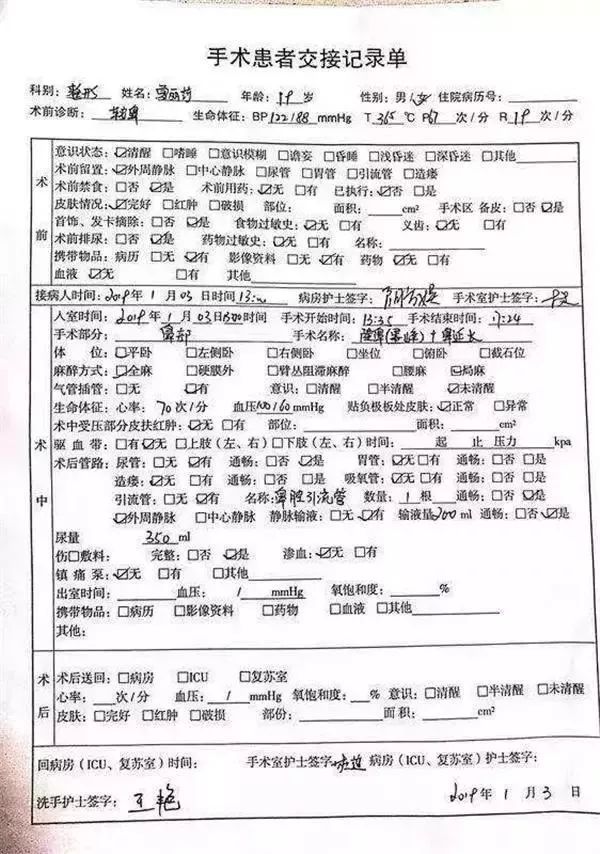 手术患者交接记录单
科别：整形 姓名： 年龄：19 岁 性别：男/女 住院病历号：
术前诊断： 生命体征：BP 122/88 mmHg T 36⁵ ℃ P 67 次/分 R 19 次/分
术前
意识状态：☑清醒 □嗜睡 □意识模糊 □谵妄 □昏睡 □浅昏迷 □深昏迷 □其他
术前留置：☑外周静脉 □中心静脉 □尿管 □胃管 □引流管 □造瘘
术前禁食：□否 ☑是 术前用药：☑无 □有 已执行：☑否 □是
皮肤情况：☑完好 □红肿 □破损 部位： 面积： cm² 手术区 备皮：□否 ☑是
首饰、发卡摘除：□否 ☑是 食物过敏史：☑无 □有 义齿：☑无 □有
术前排尿：□否 ☑是 药物过敏史：☑无 □有 名称：
携带物品：病历 □无 ☑有 影像资料 □无 ☑有 药物 ☑无 □有
血液 ☑无 □有 其他
接病人时间：2019 年 1 月 03 日时间 病房护士签字： 手术室护士签字：
术中
入室时间：2019 年 1 月 03 日 1300 时间 手术开始时间：13:35 手术结束时间：17:24
手术部分：鼻部 手术名称： 鼻延长
体 位：☑平卧 □左侧卧 □右侧卧 □坐位 □俯卧 □截石位
麻醉方式：☑全麻 □硬膜外 □臂丛阻滞麻醉 □腰麻 ☑局麻
气管插管：□无 ☑有 意识：□清醒 □半清醒 ☑未清醒
生命体征：心率：70 次/分 血压：100/60 mmHg 贴负极板处皮肤：☑正常 □异常
术中受压部分皮扶红肿：☑无 □有 部位： 面积： cm²
驱 血 带：□有 ☑无 □上肢（左、右） □下肢（左、右）时间： 起 止 压力 kpa
术后管路：尿管：□无 ☑有 通畅：□否 ☑是 胃管：☑无 □有 通畅：□否 □是
造瘘：☑无 □有 通畅：□否 □是 吸氧管：☑无 □有 通畅：□否 □是
引流管：□无 ☑有 名称：鼻腔引流管 数量：1 根 通畅：□否 ☑是
☑外周静脉 □中心静脉 静脉输液：□无 ☑有 输液量 ml 通畅：□否 ☑是
尿量 350 ml
伤□敷料： 完整：□否 ☑是 渗血：☑无 □有
镇 痛 泵：☑无 □有 □其他
出室时间： 血压： / mmHg 氧饱和度： %
携带物品：□病历 □影像资料 □药物 □血液 □其他
其他：
术后
术后送回：□病房 □ICU □复苏室
心率： 次/分 血压： / mmHg 氧饱和度： % 意识：□清醒 □半清醒 □未清醒
皮肤：□完好 □红肿 □破损 部份： 面 积： cm²
回病房（ICU、复苏室）时间： 手术室护士签字 病房（ICU、复苏室）护士签字：
洗手护士签字：王艳 2019 年 1 月 3 日